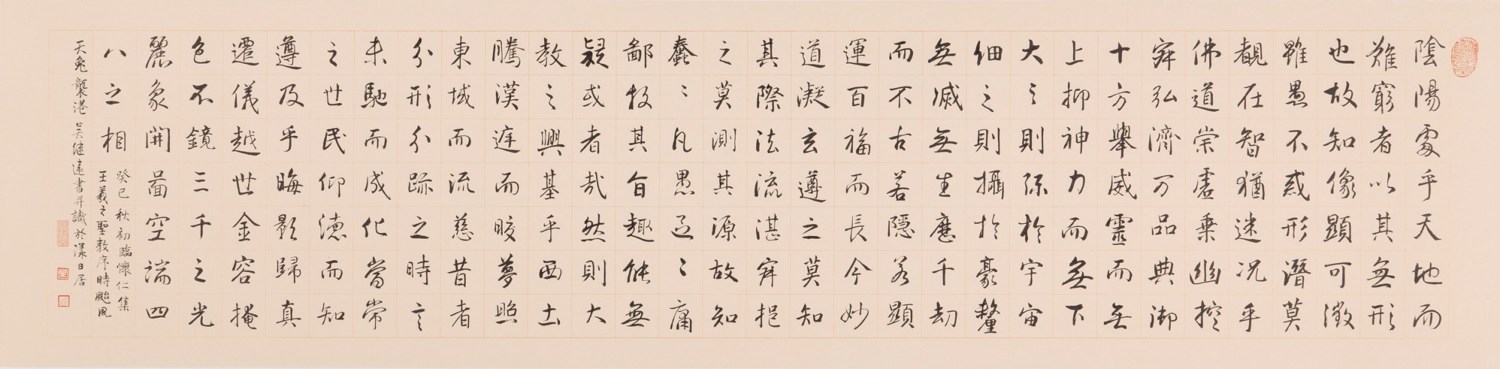 陰陽處乎天地而
難窮者以其無形
也故知像顯可徵
雖愚不惑形潛莫
覩在智猶迷況乎
佛道崇虛乘幽控
寂弘濟万品典御
十方舉威靈而無
上抑神力而無下
大之則弥於宇宙
細之則攝於豪釐
無滅無生歷千劫
而不古若隱若顯
運百福而長今妙
道凝玄遵之莫知
其際法流湛寂挹
之莫測其源故知
蠢々凡愚區々庸
鄙投其旨趣能無
疑或者哉然則大
教之興基乎西土
騰漢庭而皎夢照
東域而流慈昔者
分形分跡之時言
未馳而成化當常
之世民仰德而知
遵及乎晦影歸真
遷儀越世金容掩
色不鏡三千之光
麗象開圖空端四
八之相
癸巳秋初臨懷仁集
王羲之聖教序時颱風
天兔襲港吳繼遠書并識於日居